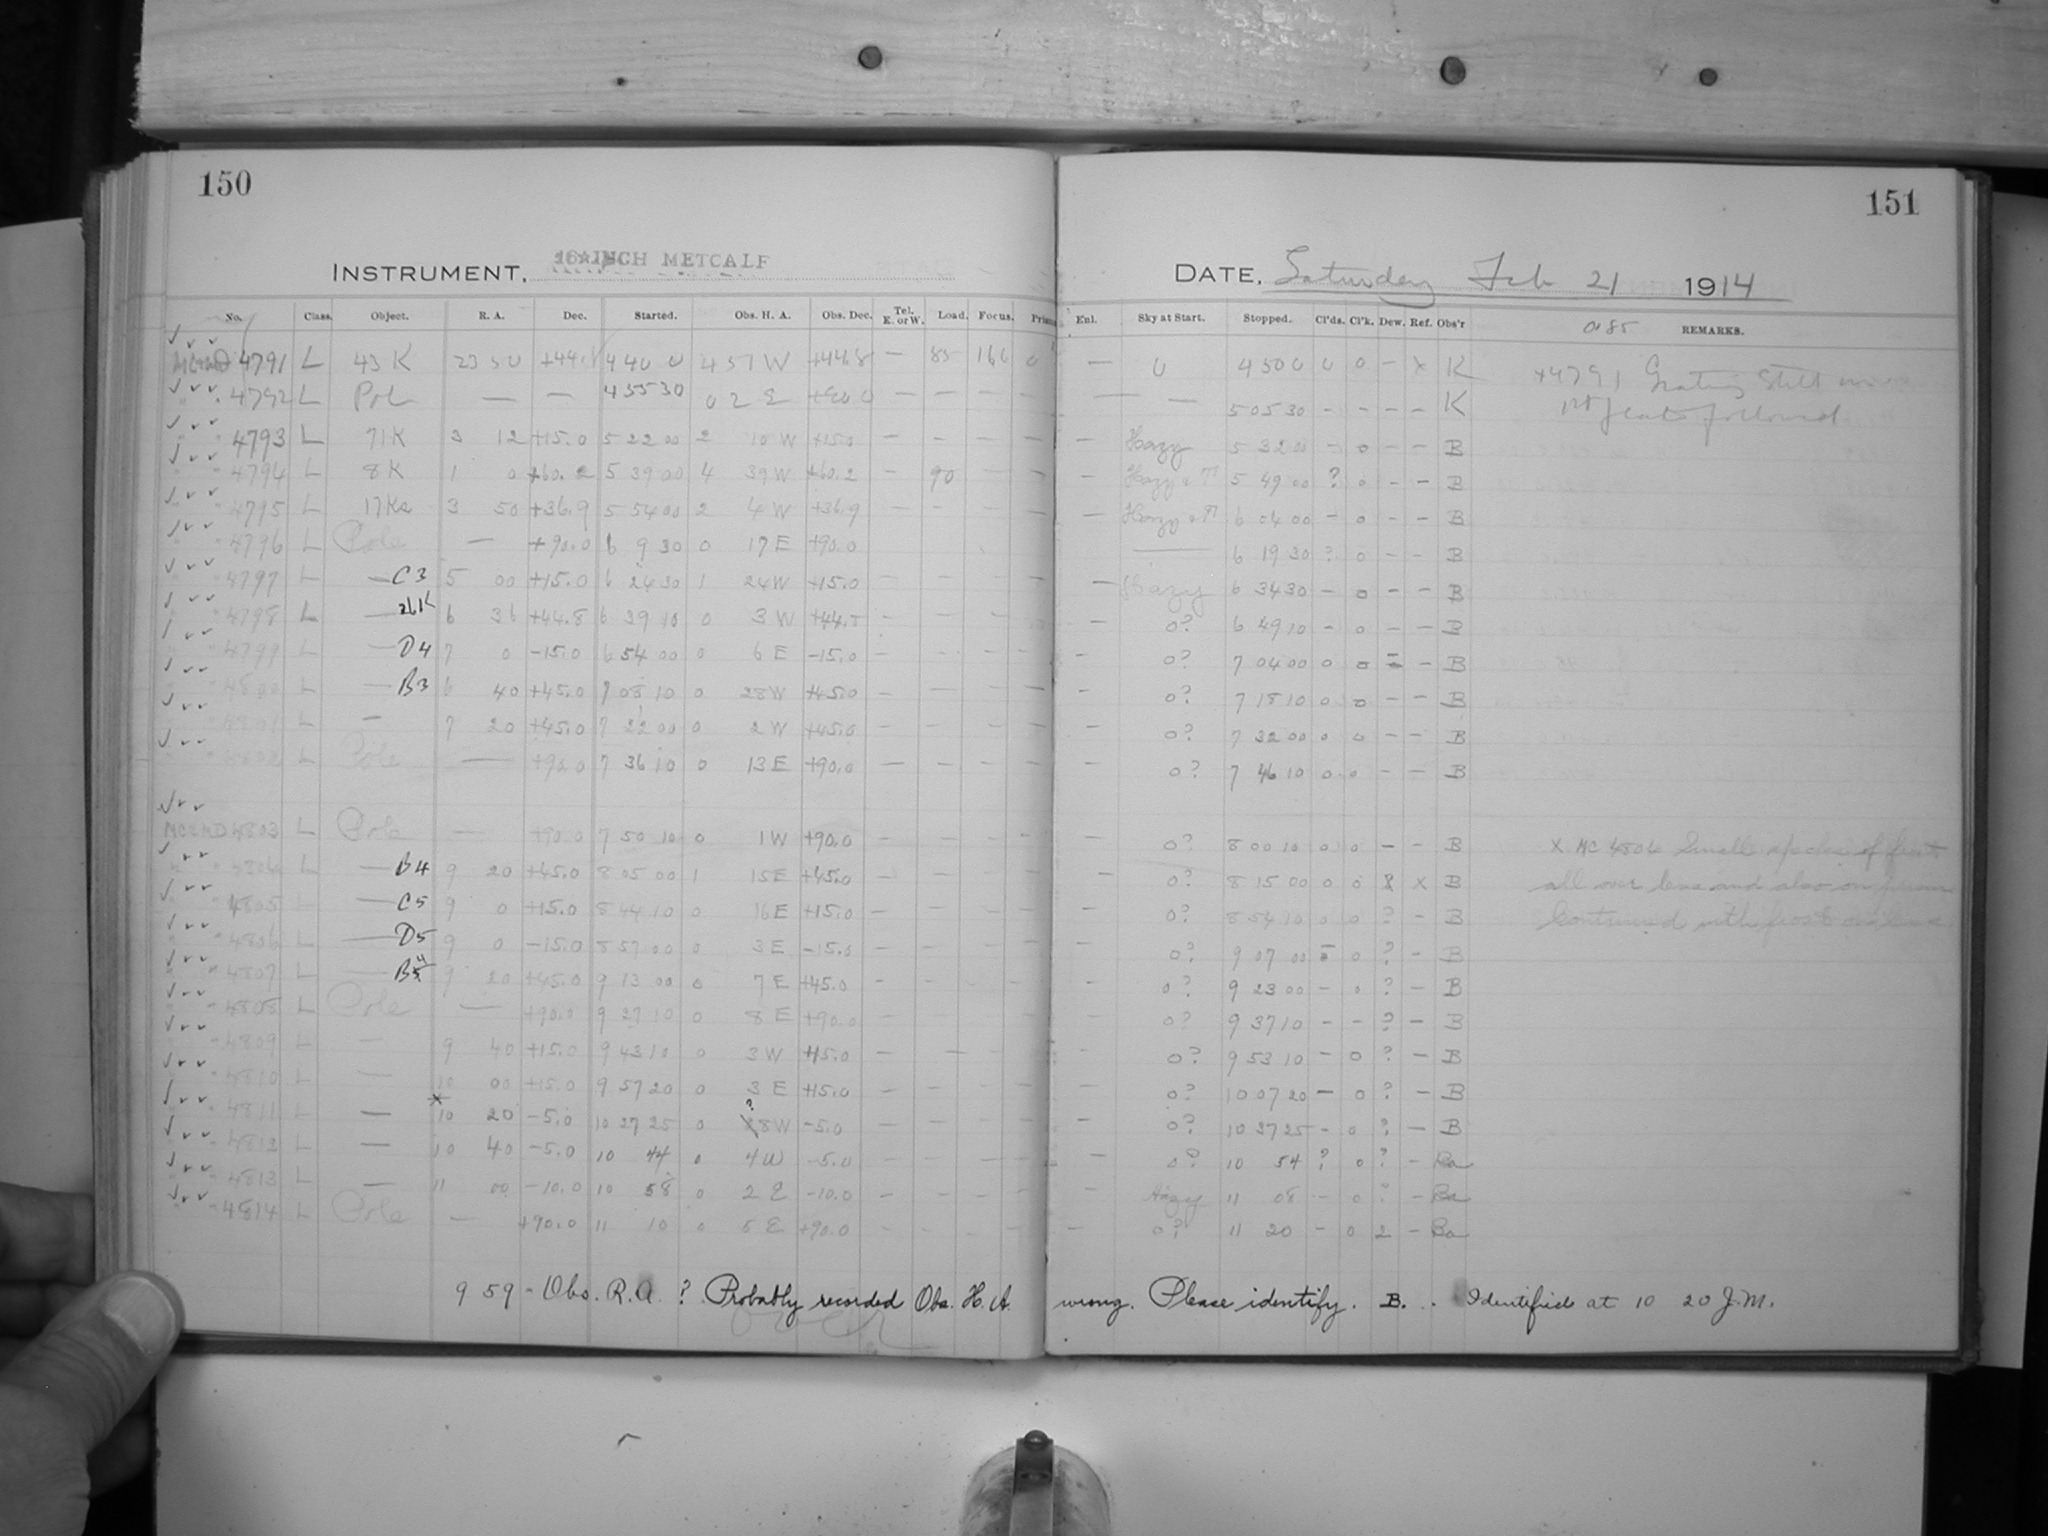 150
151
INSTRUMENT, 16-INCH METCALF
DATE, Saturday Feb 21 1914
No. Class. Object. R. A. Dec. Started. Obs. H. A. Obs. Dec. Tel. E. or W. Load. Focus. Prism Enl. Sky at Start. Stopped. Cl'ds. Cl'k. Dew. Ref. Obs'r REMARKS.
4791 L 43 K 23 50 4 40 0 4 57 W +44.8 — 85 0 — 0 4 50 0 0 0 – x K
4792 L Pole — — 4 55 30 0 2 E +90.0 — — 5 05 30 – – – – K
4793 L 71 K 3 12 +15.0 5 22 00 2 10 W +15.0 — — — — — Hazy 5 32 00 – 0 – – B
4794 L 8 K 1 0 +60.2 5 39 00 4 39 W +60.2 – 90 — — – Hazy 5 49 00 ? 0 – – B
4795 L 17 Ka 3 50 +36.9 5 54 00 2 4 W +36.9 – – – – – Hazy 6 04 00 – 0 – – B
4796 L Pole — +90.0 6 9 30 0 17 E +90.0 — 6 19 30 ? 0 – – B
4797 L — C3 5 00 +15.0 6 24 30 1 24 W +15.0 – – – – – Hazy 6 34 30 – 0 – – B
4798 L — 26 K 6 36 +44.8 6 39 10 0 3 W – – – – 0? 6 49 10 – 0 – – B
4799 L — D4 7 0 -15.0 6 54 00 0 6 E -15.0 – – – – – 0? 7 04 00 0 0 – – B
4800 L — B3 6 40 +45.0 7 08 10 0 28 W +45.0 – – – – – 0? 7 18 10 0 0 – – B
4801 L — 7 20 +45.0 7 22 00 0 2 W +45.0 – – – – – 0? 7 32 00 0 0 – – B
4802 L Pole — +90.0 7 36 10 0 13 E +90.0 – – – – 0? 7 46 10 0 0 – – B
4803 L Pole — +90.0 7 50 10 0 1 W +90.0 – – – – – 0? 8 00 10 0 0 – – B
L — B4 9 20 +45.0 8 05 00 1 15 E +45.0 – – – – 0? 8 15 00 0 0 x B
all over lens and also on prism
4805 L — C5 9 0 +15.0 8 44 10 0 16 E +15.0 – – – – – 0? 8 54 10 0 0 ? – B
Continued with frost on lens
4806 L — D5 9 0 -15.0 8 57 00 0 3 E -15.0 – – – – – 0? 9 07 00 0 ? – B
4807 L — B4 9 20 +45.0 9 13 00 0 7 E +45.0 – – – – – 0? 9 23 00 – 0 ? – B
4808 L Pole — +90.0 9 27 10 0 8 E +90.0 – – – – – 0? 9 37 10 – – ? – B
4809 L — 9 40 +15.0 9 43 10 0 3 W +15.0 – – – – 0? 9 53 10 – 0 ? – B
4810 L — 10 00 +15.0 9 57 20 0 3 E +15.0 – – – – – 0? 10 07 20 – 0 ? – B
4811 L — * 10 20 -5.0 10 27 25 0 8 W -5.0 – – – – – 0? 10 37 25 – 0 ? – B
L — 10 40 -5.0 10 44 0 4 W -5.0 – – – – – 0? 10 54 ? 0 ? – Ba
4813 L — 11 00 -10.0 10 58 0 2 E -10.0 – – – – – Hazy 11 08 – 0 ? – Ba
4814 L Pole — 11 10 0 5 E +90.0 – – – – – 0? 11 20 – 0 2 – Ba
9 59 - Obs. R.A. ? Probably recorded Obs. H. A. wrong. Please identify. B. Identified at 10 20 J.M.